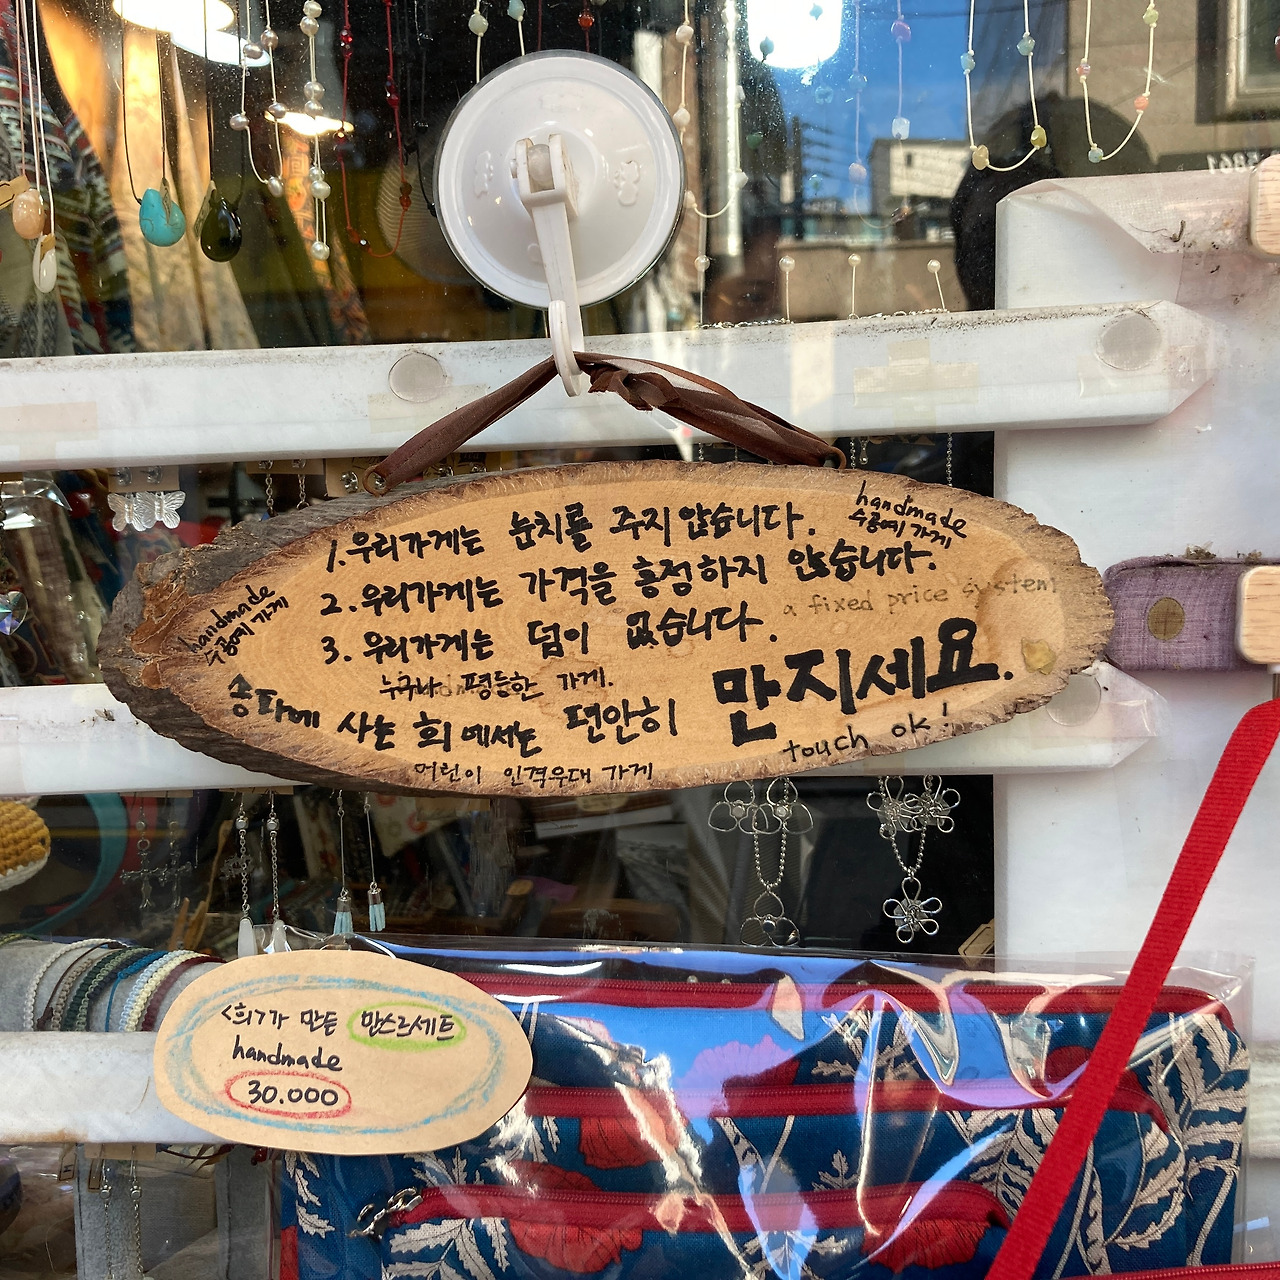 1. 우리가게는 눈치를 주지 않습니다.
handmade
수공예 가게
2. 우리가게는 가격을 흥정하지 않습니다.
a fixed price system
3. 우리가게는 덤이 없습니다.
누구나 평등한 가게.
handmade
수공예 가게
송파에 사는 희에서는 편안히 만지세요.
touch ok!
어린이 인격우대 가게
<희>가 만든 만스르세트
handmade
30.000